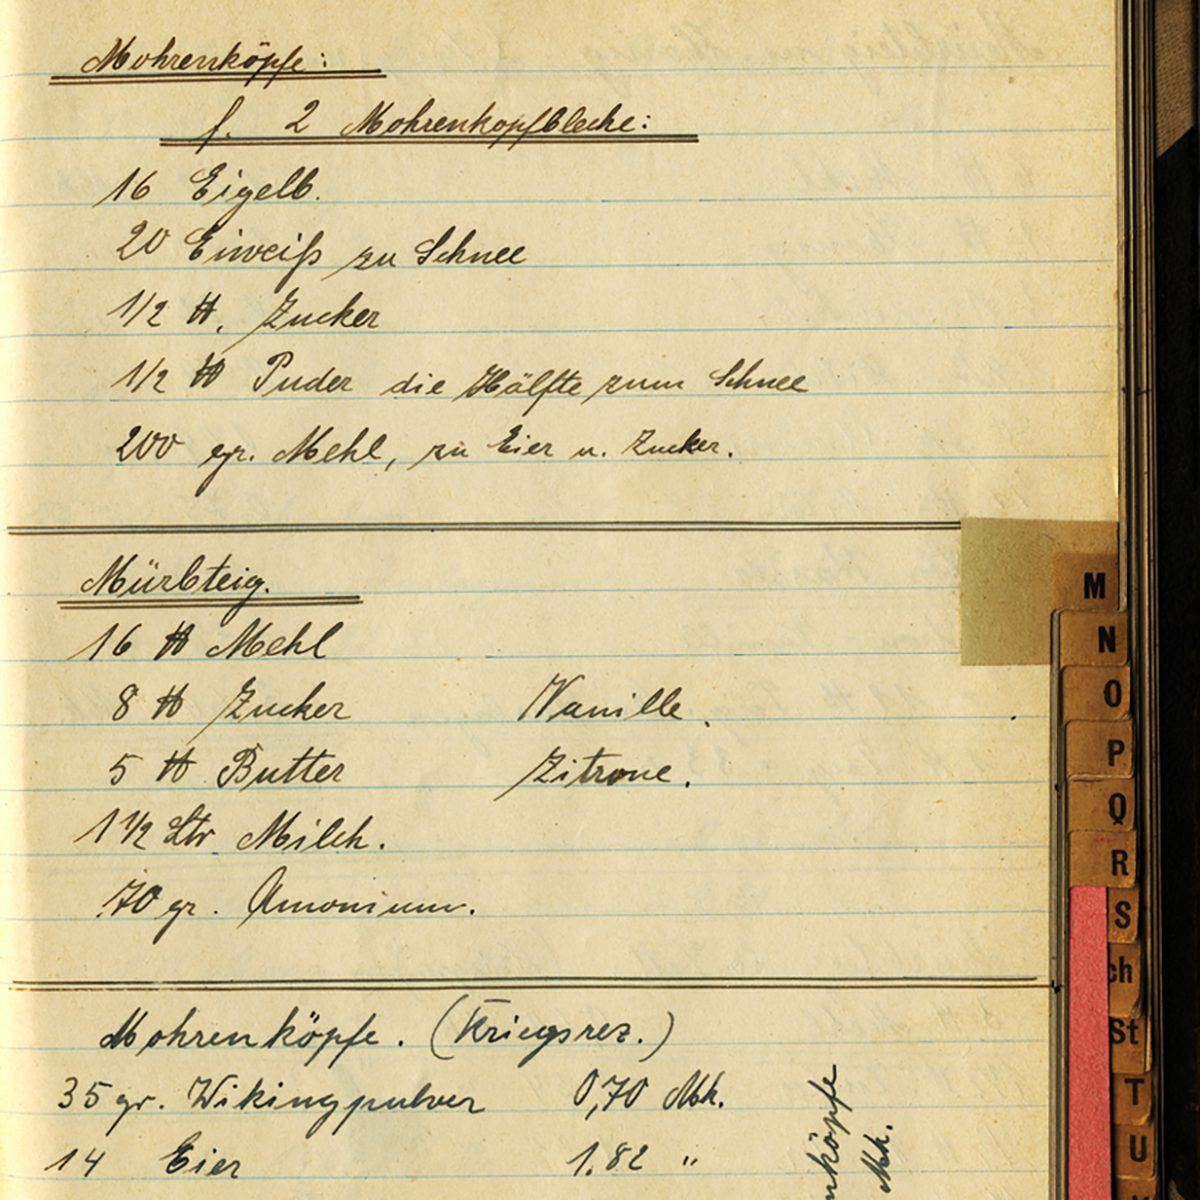 Mohrenköpfe:
f. 2 Mohrenkopfbleche:
16 Eigelb.
20 Eiweiß zu Schnee
1/2 ℔. Zucker
1/2 ℔ Puder die Hälfte zum Schnee
200 gr. Mehl, zu Eier u. Zucker.
Mürbteig.
16 ℔ Mehl
8 ℔ Zucker Vanille.
5 ℔ Butter Zitrone.
1 1/2 Ltr Milch.
70 gr. Amonium.
Mohrenköpfe. (Kriegsrez.)
35 gr. Wikingpulver 0,70 Mk.
14 Eier 1.82 "
nköpfe
Mk.
M
N
O
P
Q
R
S
ch
St
T
U